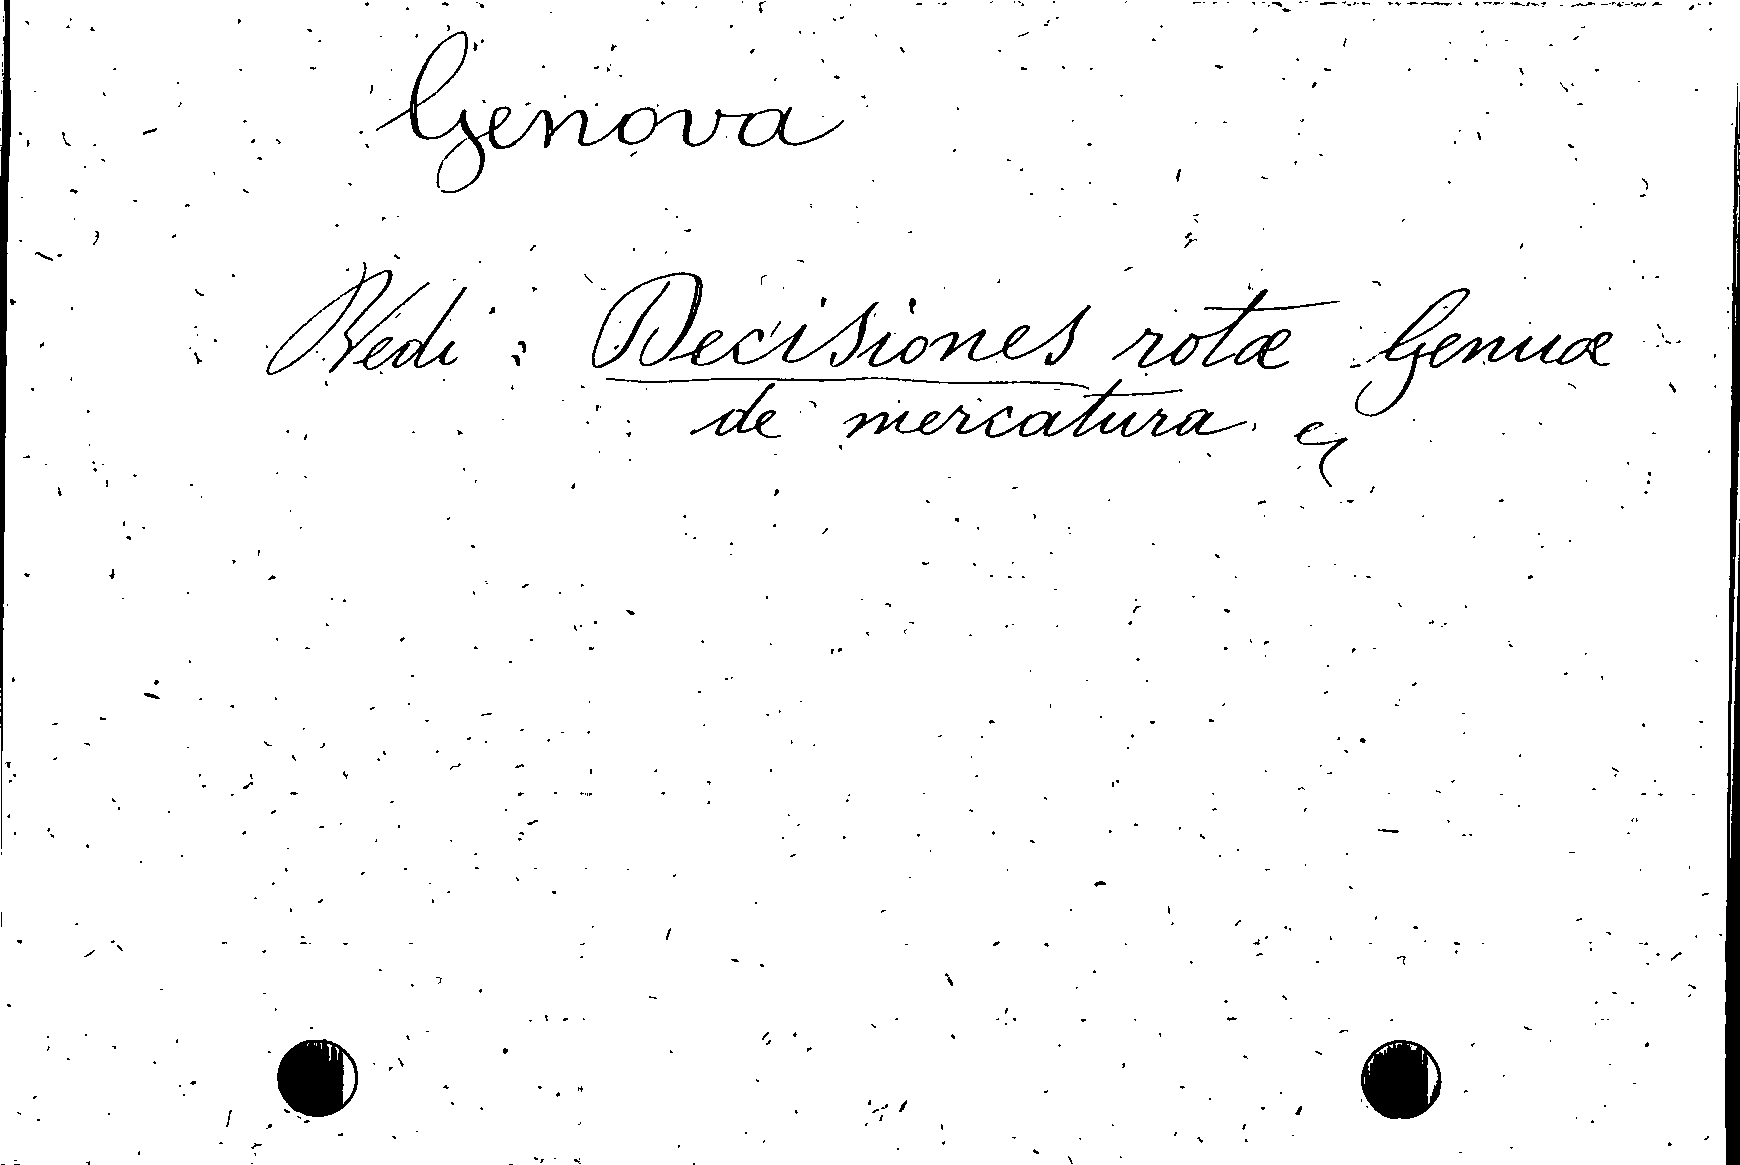 Genova
Vedi : Decisiones rotæ Genuæ
de mercatura.